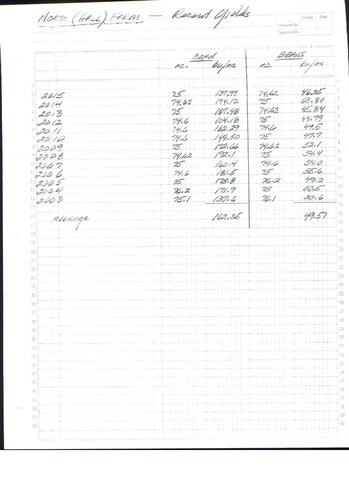 North (Hall) Farm — Recent Yields
CORN BEANS
AC. Bu/Ac AC Bu/Ac
2015 75 137.97 74.62 46.25
2014 74.62 174.12 75 60.80
2013 75 167.48 74.62 45.84
2012 74.6 104.18 75 44.79
2011 74.6 162.29 74.6 49.5
2010 74.6 144.50 75 47.7
2009 75 172.66 74.62 52.1
2008 74.62 192.1 75 54.4
2007 75 160.4 74.6 54.0
2006 74.6 181.5 75 55.6
2005 75 178.8 76.2 49.2
2004 76.2 171.9 75 50.5
2003 75.1 137.6 76.1 30.6
Average 162.35 49.57